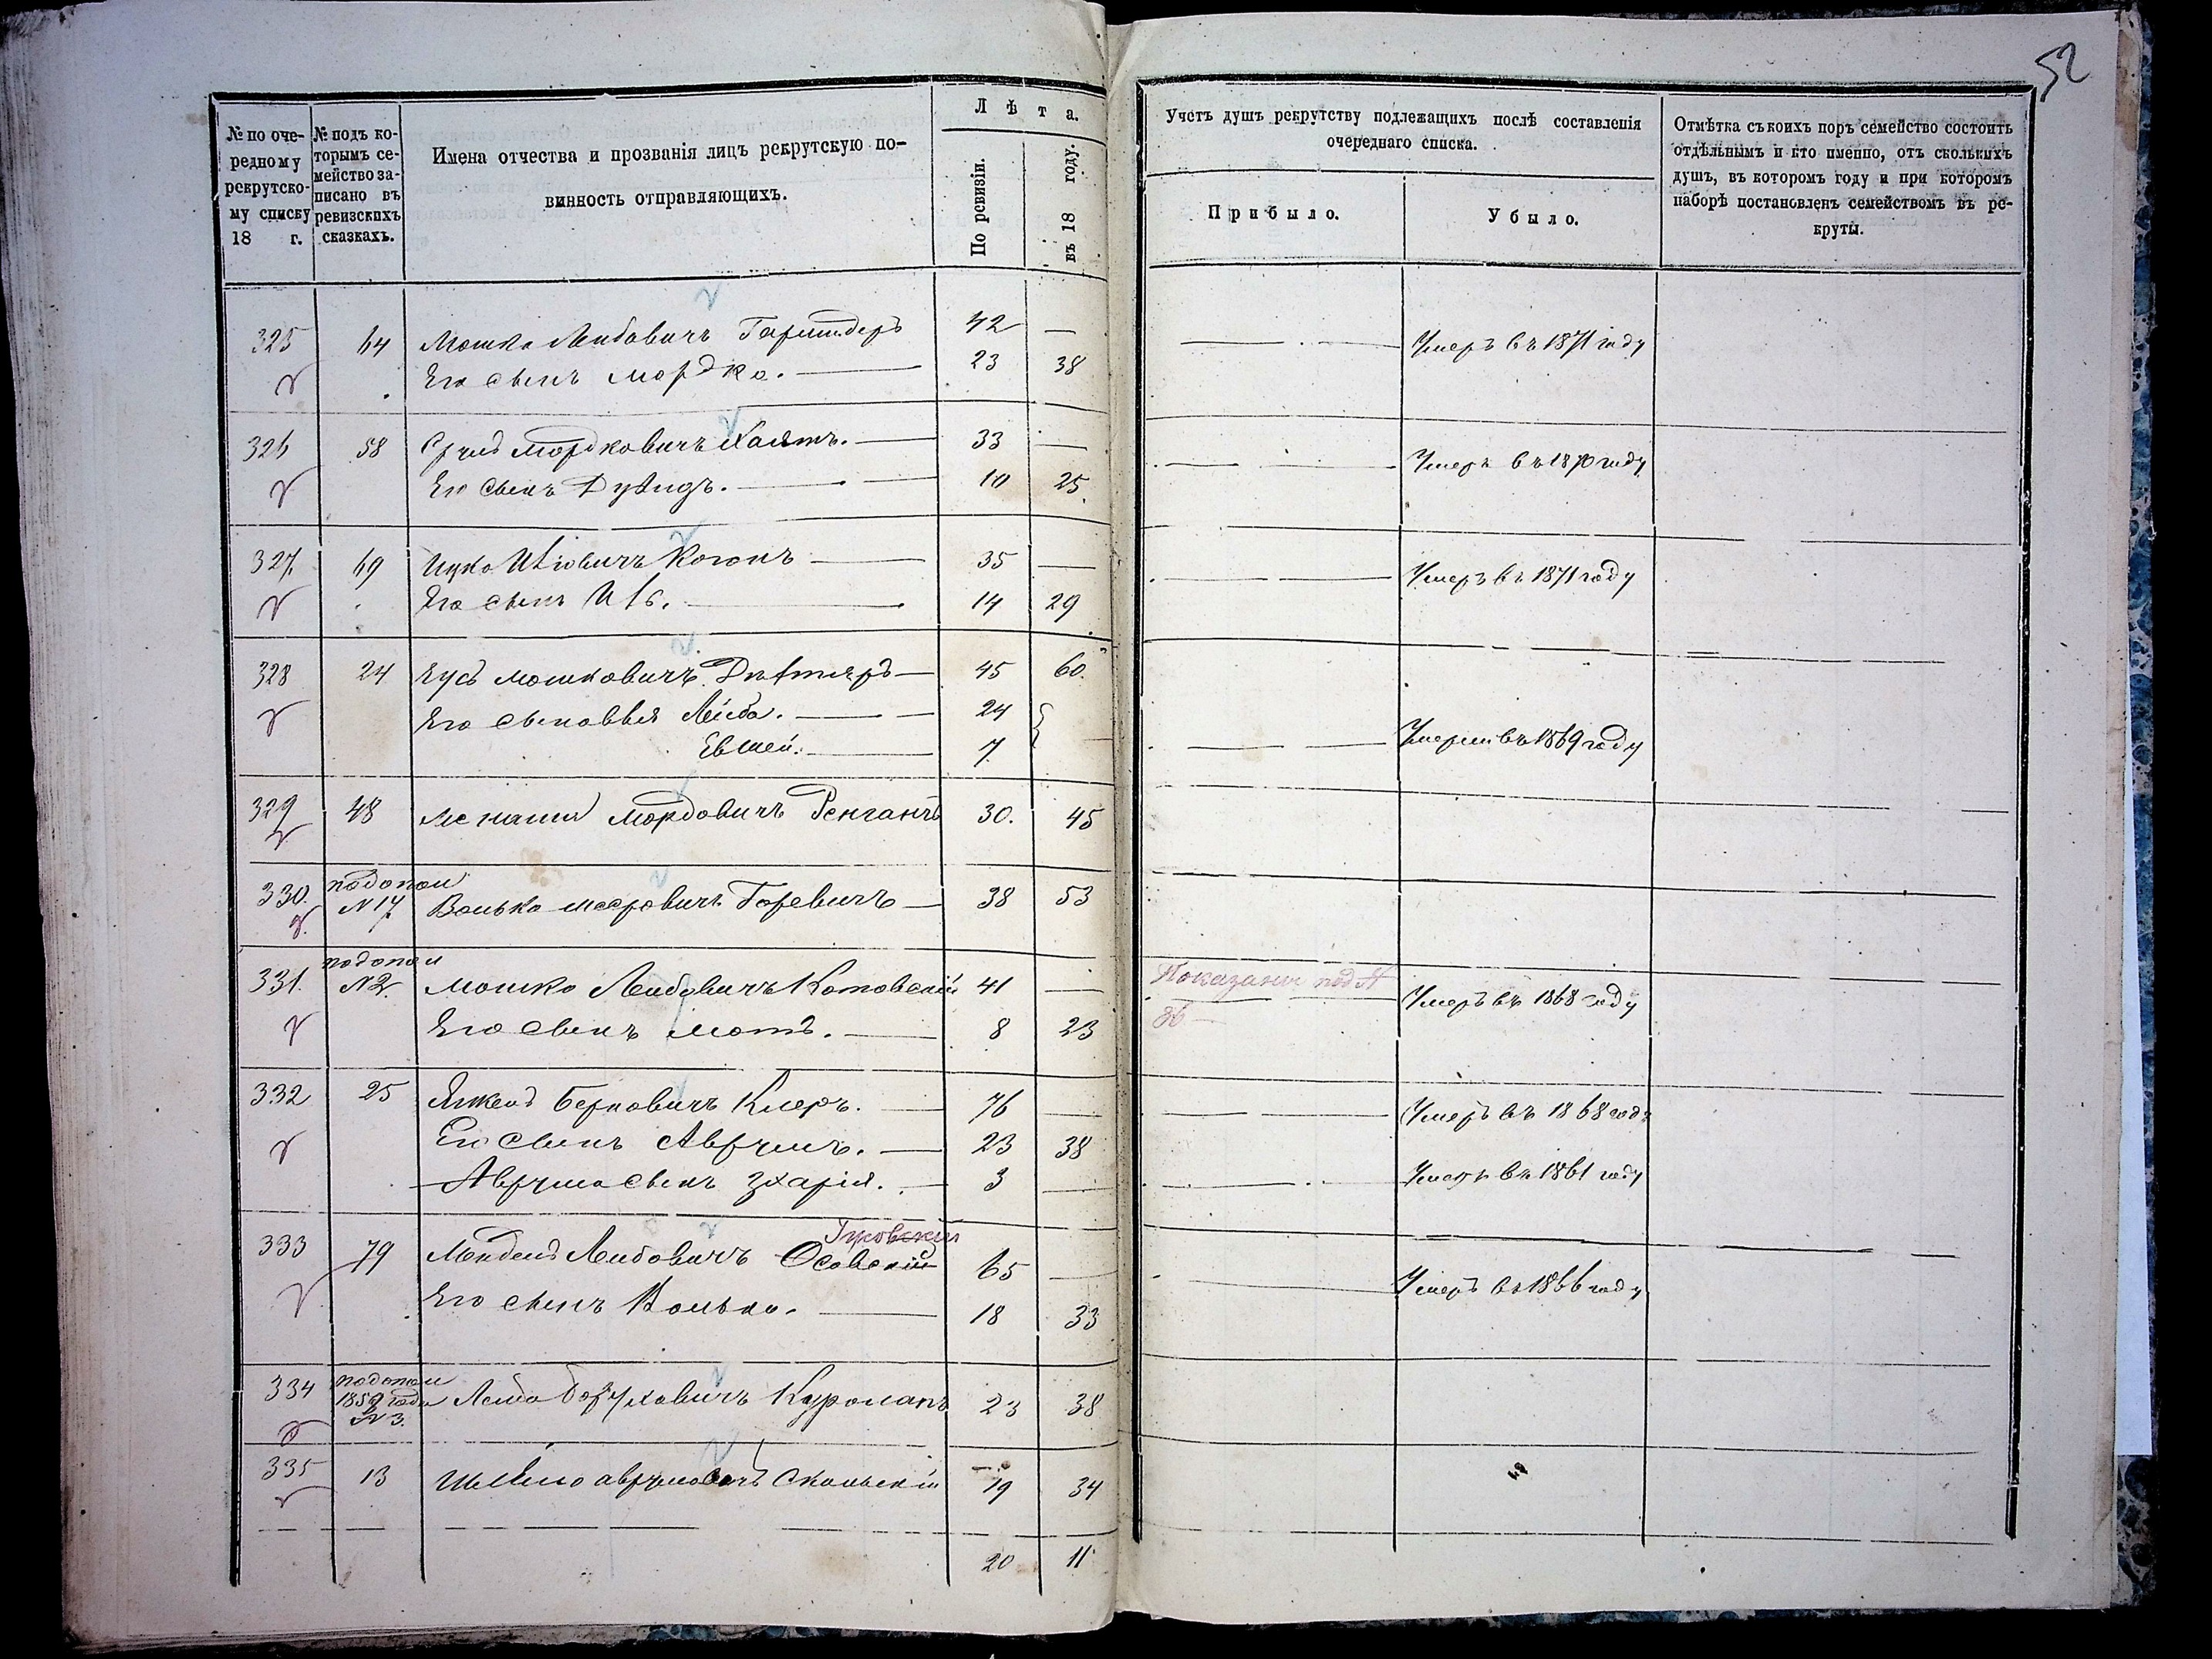 52
№ по оче-
редному
рекрутско-
му списку
18 г.
№ подъ ко-
торымъ се-
мейство за-
писано въ
ревизскихъ
сказкахъ.
Имена отчества и прозванія лицъ рекрутскую по-
винность отправляющихъ.
Лѣта.
По ревизіи.
въ 18 году.
Учетъ душъ рекрутству подлежащихъ послѣ составленія
очереднаго списка.
Прибыло.
Убыло.
Отмѣтка съ коихъ поръ семейство состоитъ
отдѣльнымъ и кто именно, отъ сколькихъ
душъ, въ которомъ году и при которомъ
наборѣ постановленъ семействомъ въ ре-
круты.
325 64 Мошко Лейбовичъ 42 — Умеръ въ 1871 году
Его сынъ Мордко. 23 38
326 58 Сруль Мордковичъ Хаятъ. 33 — Умеръ въ 1870 году
Его сынъ Дувидъ. 10 25.
327. 69 Ицко Когонъ 35 — Умеръ въ 1871 году
Его сынъ 14 29
328 24 Мошковичъ 45 60.
Его сыновья Лейба. 24
Евшей. 7 — Умерли въ 1869 году
329 48 Менаша Мордовичъ 30. 45
330. подополн
N 17 Волько Мееровичъ Горевичъ 38 53
331. подополн
N 2. Мошко Лейбовичъ Котовскій 41 — Показанъ под N
36 Умеръ въ 1868 году
Его сынъ Мотъ. 8 23
332 25 Берковичъ 76 — Умеръ въ 1868 году
Его сынъ Аврумъ. 23 38
Аврума сынъ Зхарія. 3 — Умеръ въ 1861 году
333 79 Мендель Лейбовичъ Осовскій 65 — Умеръ въ 1866 году
Его сынъ Волько. 18 33
334 подополн
1859 года
N 3. Лейба Боруховичъ 23 38
335 13 Аврумовичъ Скольскій 19 34
20 11